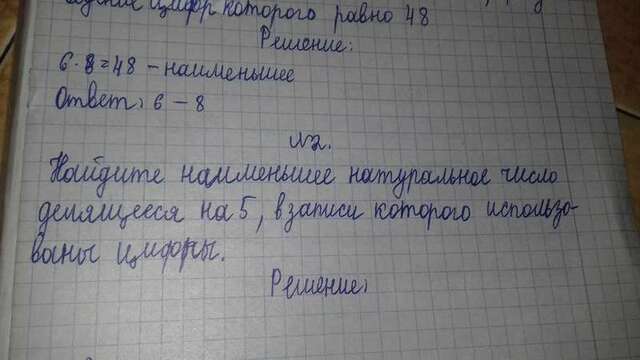 цифр которого равно 48
Решение:
6 · 8 = 48 – наименьшее
Ответ: 6 – 8
№2.
Найдите наименьшее натуральное число
делящееся на 5, в записи которого использо-
ваны цифры.
Решение: